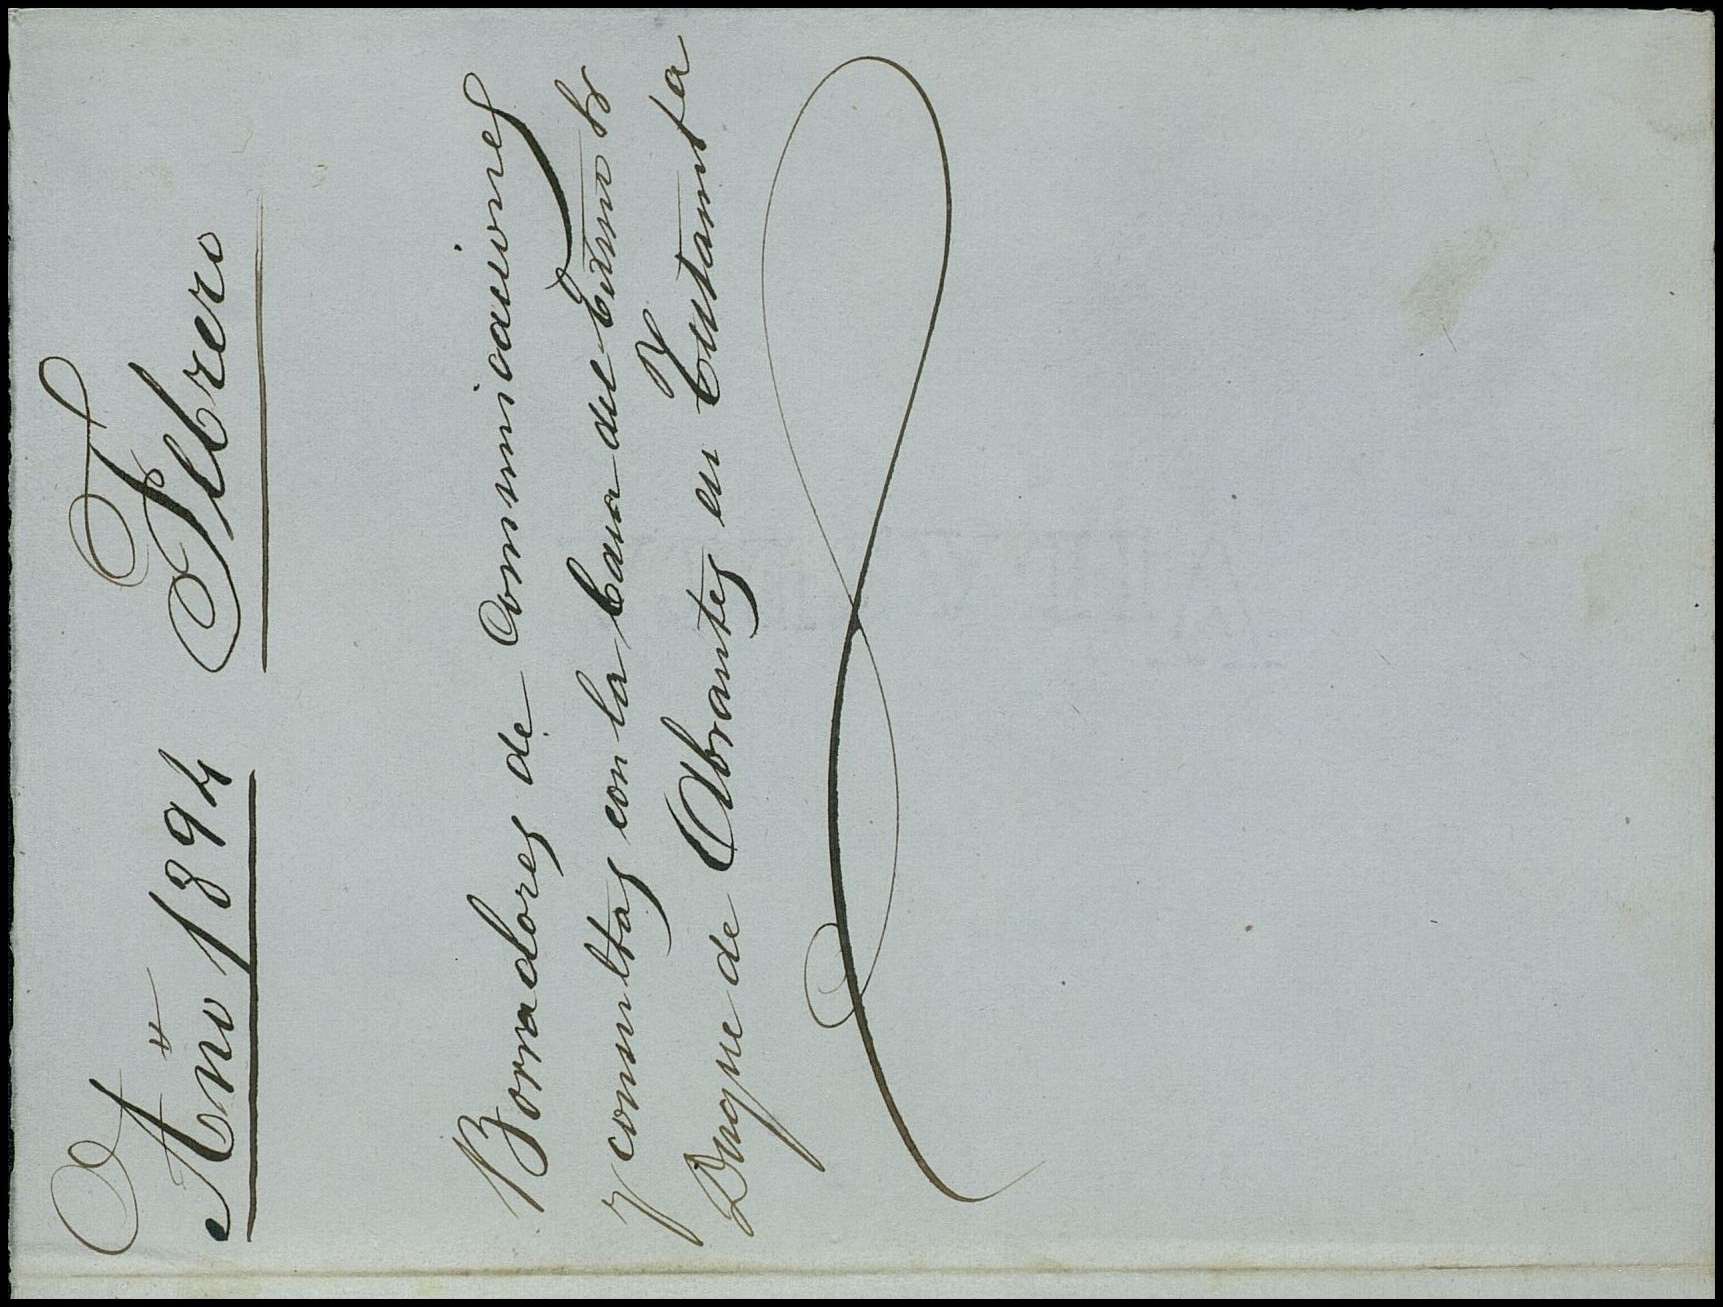 Año 1894 Febrero
Borradores de Comunicaciones
y consultas con la Casa del Exmo Sr
Duque de Abrantes en Testamta